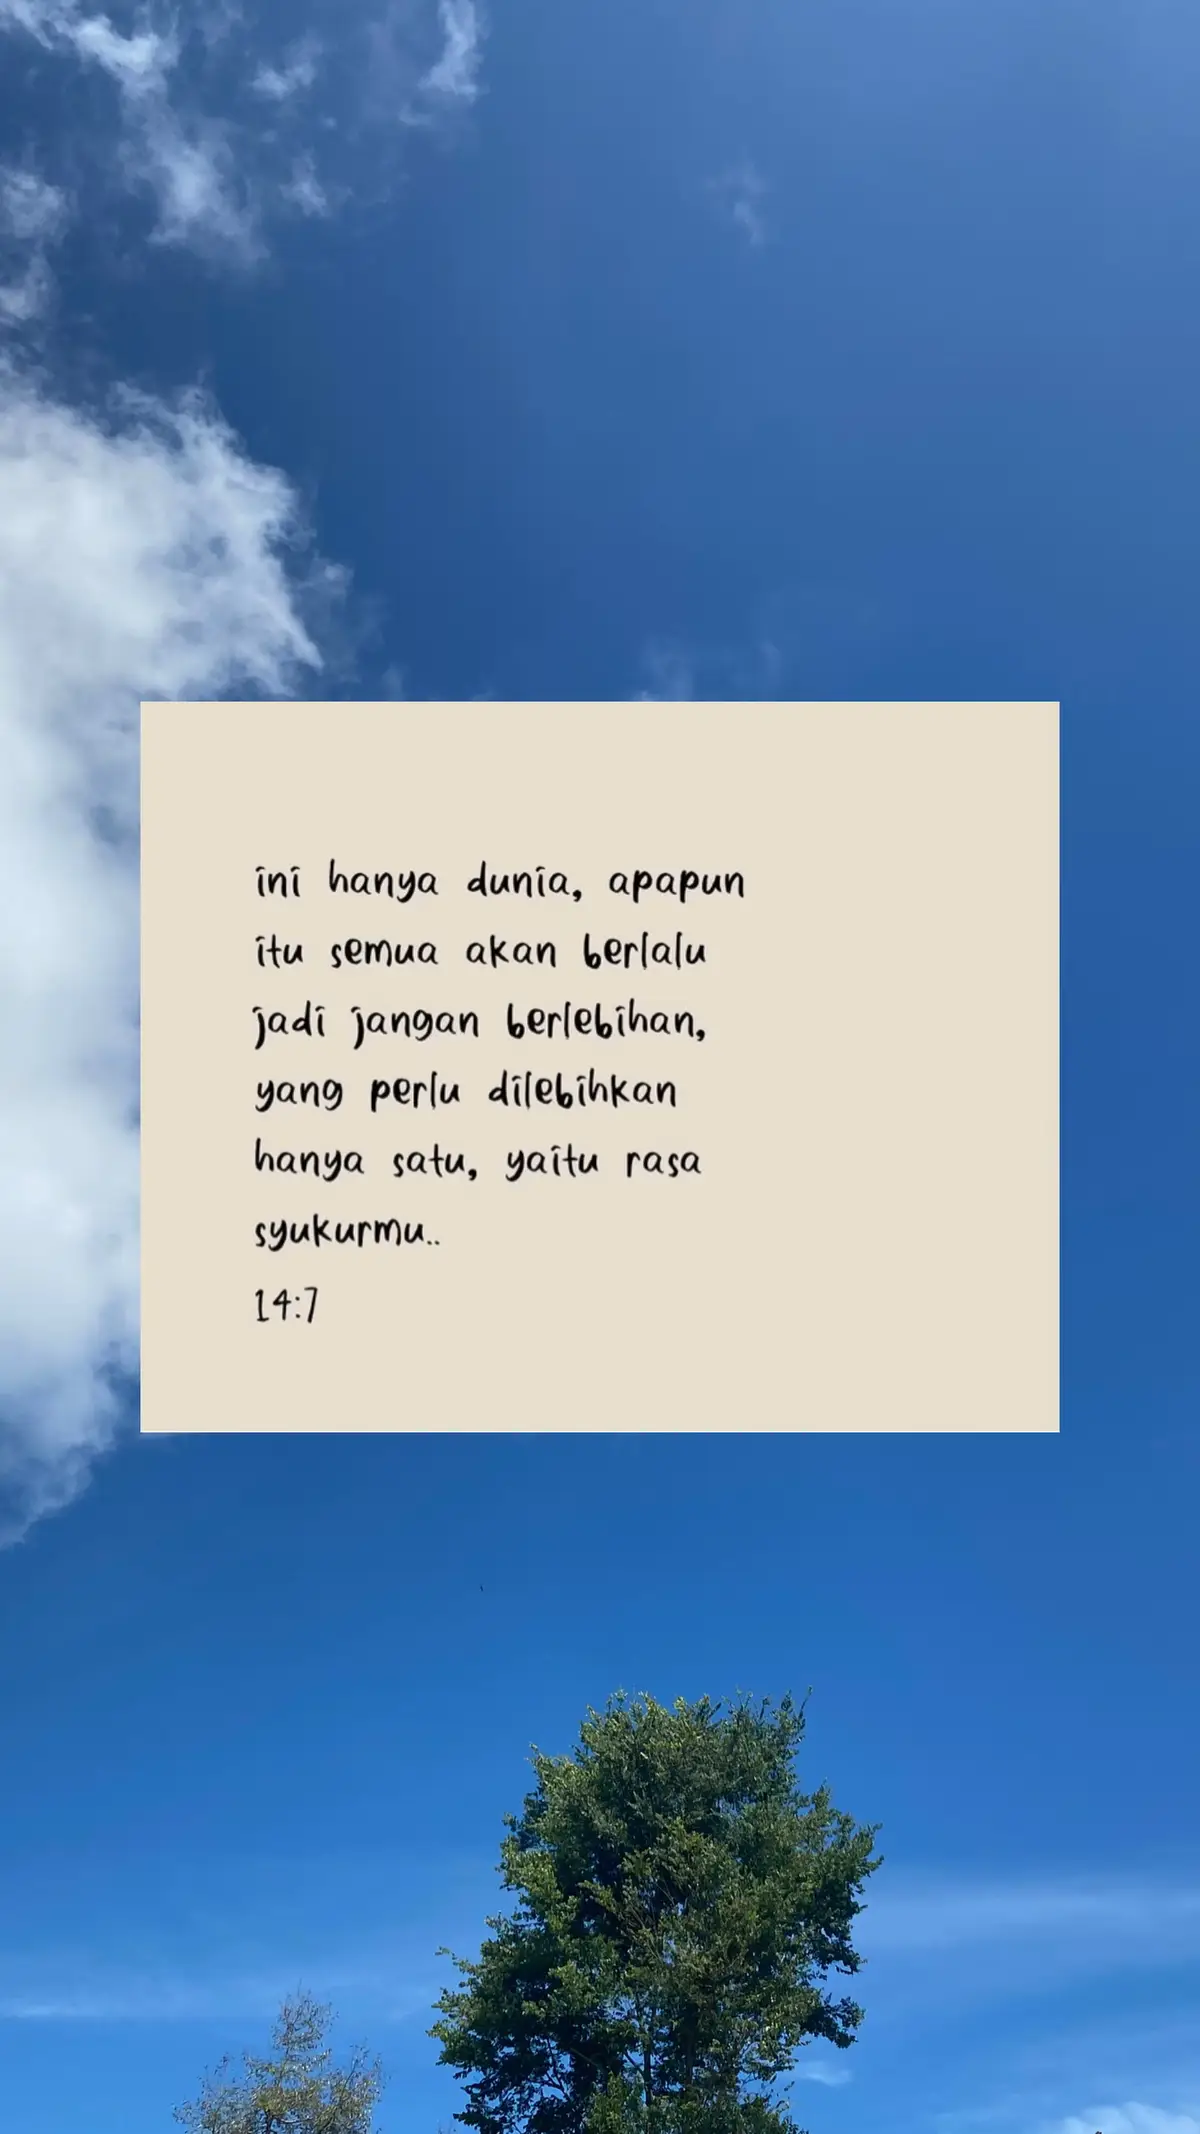 ini hanya dunia, apapun
itu semua akan berlalu
jadi jangan berlebihan,
yang perlu dilebihkan
hanya satu, yaitu rasa
syukurmu..
14:7